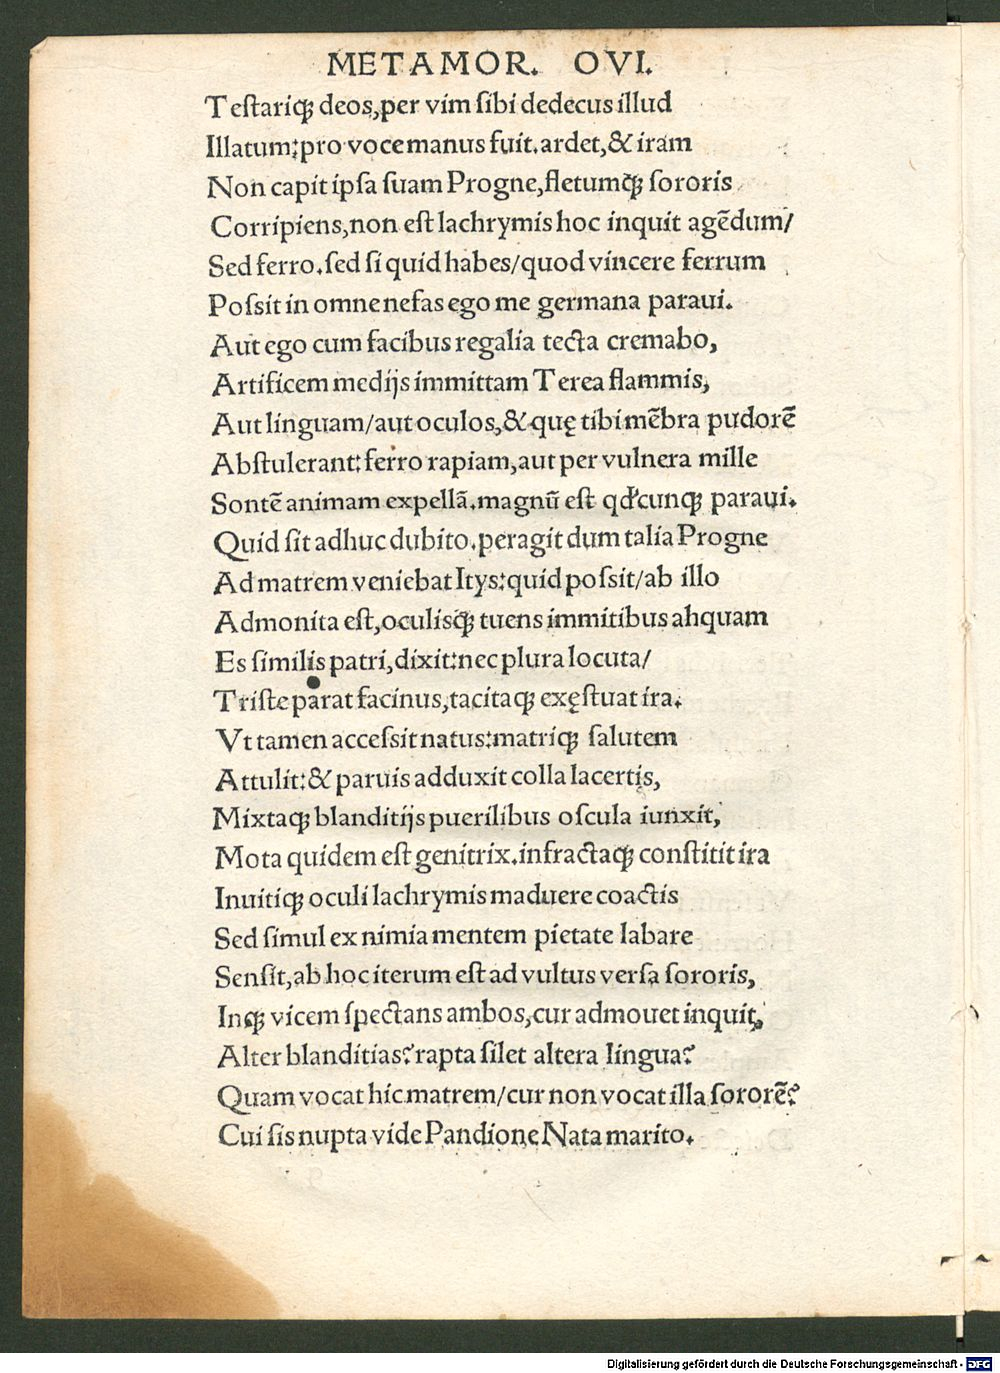 METAMOR. OVI.
Testariqꝫ deos,per vim sibi dedecus illud
Illatum:pro voce manus fuit.ardet,& iram
Non capit ipsa suam Progne,fletumqꝫ sororis
Corripiens,non est lachrymis hoc inquit agēdum/
Sed ferro.sed si quid habes/quod vincere ferrum
Possit in omne nefas ego me germana paraui.
Aut ego cum facibus regalia tecta cremabo,
Artificem medijs immittam Terea flammis,
Aut linguam/aut oculos,& quę tibi mēbra pudorē
Abstulerant:ferro rapiam,aut per vulnera mille
Sontē animam expellā.magnū est qd́cunqꝫ paraui.
Quid sit adhuc dubito.peragit dum talia Progne
Ad matrem veniebat Itys:quid possit/ab illo
Admonita est,oculisqꝫ tuens immitibus ahquam
Es similis patri,dixit:nec plura locuta/
Triste parat facinus,tacitaqꝫ exęstuat ira.
Vt tamen accessit natus:matriqꝫ salutem
Attulit:& paruis adduxit colla lacertis,
Mixtaqꝫ blanditijs puerilibus oscula iunxit,
Mota quidem est genitrix.infractaqꝫ constitit ira
Inuitiqꝫ oculi lachrymis maduere coactis
Sed simul ex nimia mentem pietate labare
Sensit,ab hoc iterum est ad vultus versa sororis,
Inqꝫ vicem spectans ambos,cur admouet inquit,
Alter blanditias?rapta silet altera lingua?
Quam vocat hic matrem/cur non vocat illa sororē?
Cui sis nupta vide Pandione Nata marito.
Digitalisierung gefördert durch die Deutsche Forschungsgemeinschaft - DFG